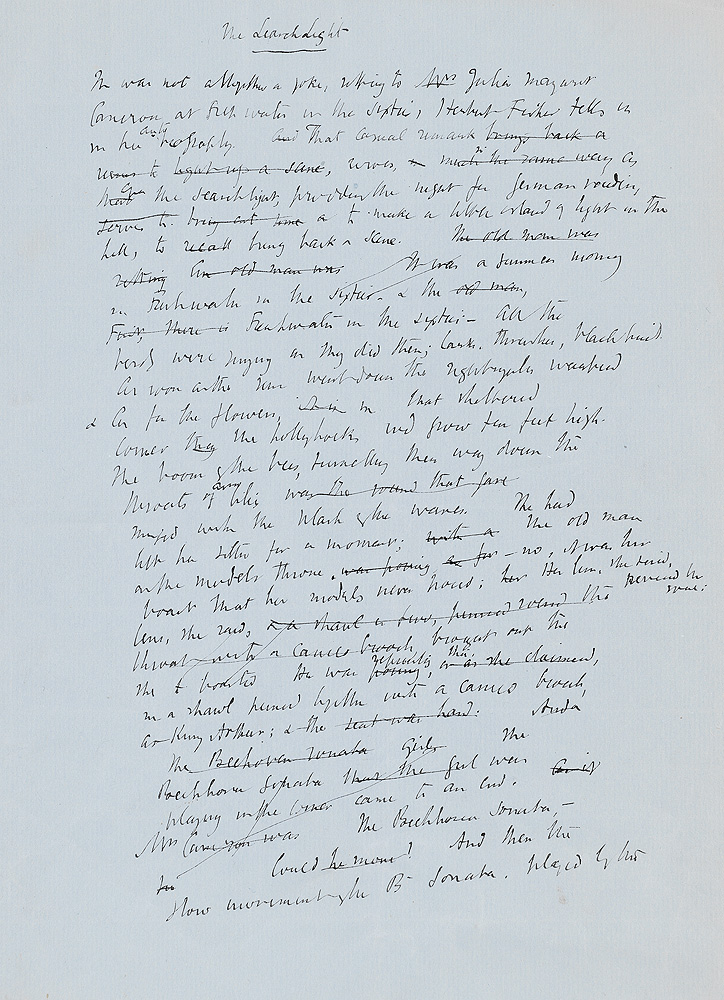 The Searchlight
It was not altogether a joke, sitting to Mrs Julia Margaret
Cameron, at Freshwater in the sixties, Herbert Fisher tells us
in his autobiography. And That casual remark brings back a
to light up a scene, serves, much in the same way as
the searchlight, the night for German raiders,
serves to bring out some to make a silver island of light in the
to recall bring back a scene. The old man was
sitting An old man was It was a summer
in Freshwater in the sixties. & the old man,
First, there is Freshwater in the sixties - All the
birds were singing as they did then; larks, thrushes, blackbirds.
As soon as the sun went down the nightingales
& As for the flowers, in that sheltered
corner they the hollyhocks grow ten feet high.
The boom of the bees, tunnelling their way down the
throats of lilies was the sound that gave
mixed with the of the waves. She had
left her sitter for a moment; with a the old man
on the model's throne, was posing as for - no, it was her
boast that her models never posed; her Her lens, she said,
lens, she said, a shawl pinned round this
throat with a cameo brooch, brought out the soul:
she boasted He was posing, or as she claimed,
in a shawl pinned together with a cameo brooch,
as King Arthur; & the seat was hard: And a
The Beethoven sonata girl The
Beethoven Sonata that the girl was
playing in the corner came to an end. As if
Mrs Cameron was The Beethoven Sonata,-
Could he move? And then the
slow movement of the B Sonata. played by the